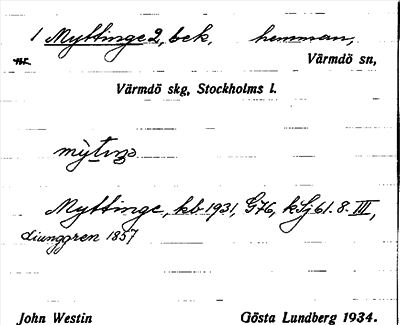 1 Myttinge 2, bek, hemman,
Värmdö sn,
Värmdö skg, Stockholms l.
Myttinge, kb 1931, G76, kSj 61. 8. III,
Ljunggren 1857
John Westin Gösta Lundberg 1934.